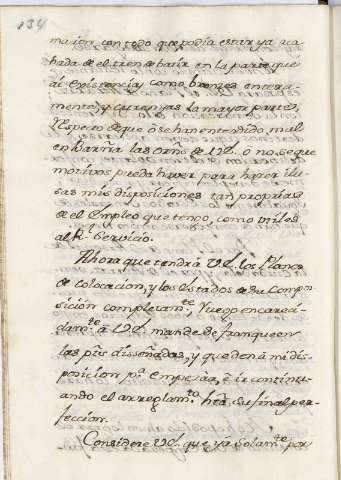 134
macion con todo que podia estar ya aca-
bada de el tren de batir en la parte que
ai existencia, como bronzes entera-
mente, y cureñas la mayor parte,
Respecto de que ò se han entendido mal
en Darña las orñs de Vd. ò no se que
motivos pueda haver para hacer ilu-
sas mis disposiciones tan propias
de el Empleo que tengo, como utiles
al Rl. Servicio.
Ahora que tendrá Vd. los Planos
de colocacion, y los Estados de su Compo-
sición completamte., Ruego encareci-
damte. à Vd. mande se franqueen
las pzs. disseñadas, y queden à mi dis-
posicion pa. empezar, è ir continu-
ando el arreglamto. hta. su final per-
feccion.
Considere Vd. que yá solamte. por